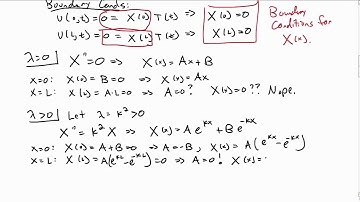 Boundary Conds:
U(0,t) = 0 = X(0) T(t) ⇒ X(0)=0
U(L,t) = 0 = X(L) T(t) ⇒ X(L)=0
Boundary
Conditions for
X(x).
λ=0 X''=0 ⇒ X(x) = Ax + B
x=0: X(0) = B = 0 ⇒ X(x) = Ax
x=L: X(L) = A·L = 0 ⇒ A=0? X(x) = 0?? Nope.
λ>0 Let λ = k² > 0
X'' = k² X ⇒ X(x) = A e^{kx} + B e^{-kx}
x=0: X(0) = A+B = 0 ⇒ A=-B, X(x) = A(e^{kx} - e^{-kx})
x=L: X(L) = A(e^{kL} - e^{-kL}) = 0 ⇒ A=0! X(x) =